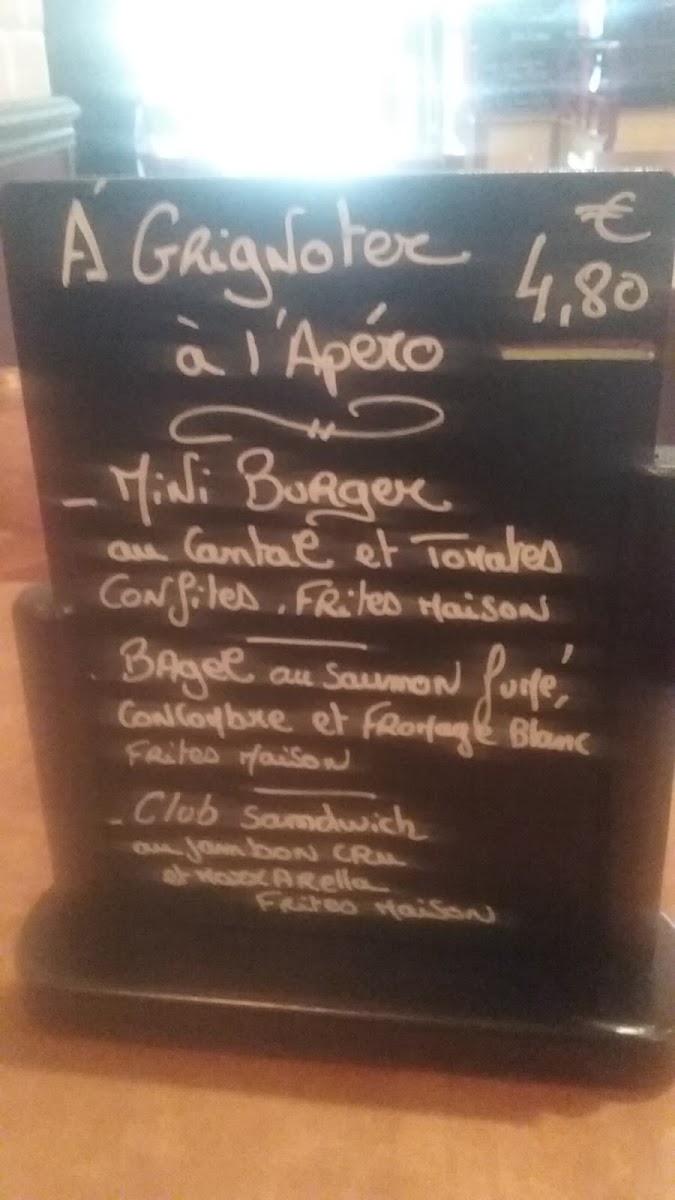 À Grignoter
€
4,80
à l'Apéro
- Mini Burger
au Cantal et Tomates
Confites, Frites Maison
- Bagel au Saumon fumé,
Concombre et Fromage Blanc
Frites Maison
- Club Sandwich
au Jambon Cru
et Mozzarella
Frites Maison